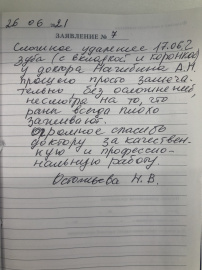 26 06 21
ЗАЯВЛЕНИЕ № 7
Сложное удаление 17.06.2
зуба (с вкладкой и коронкой)
у доктора Нагибина А.Н.
прошло просто замеча-
тельно, без осложнений,
несмотря на то, что
раны всегда плохо
заживают.
Огромное спасибо
доктору за качествен-
ную и профессио-
нальную работу.
Н.В.